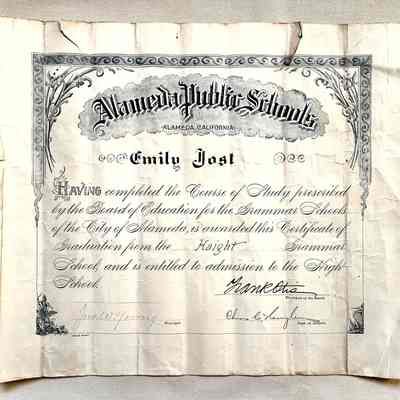 Alameda Public Schools
ALAMEDA, CALIFORNIA
Emily Jost
HAVING completed the Course of Study prescribed
by the Board of Education for the Grammar Schools
of the City of Alameda, is awarded this Certificate of
Graduation from the Haight Grammar
School, and is entitled to admission to the High
School.
Frank Otis
President of the Board
Principal
Supt. of Schools